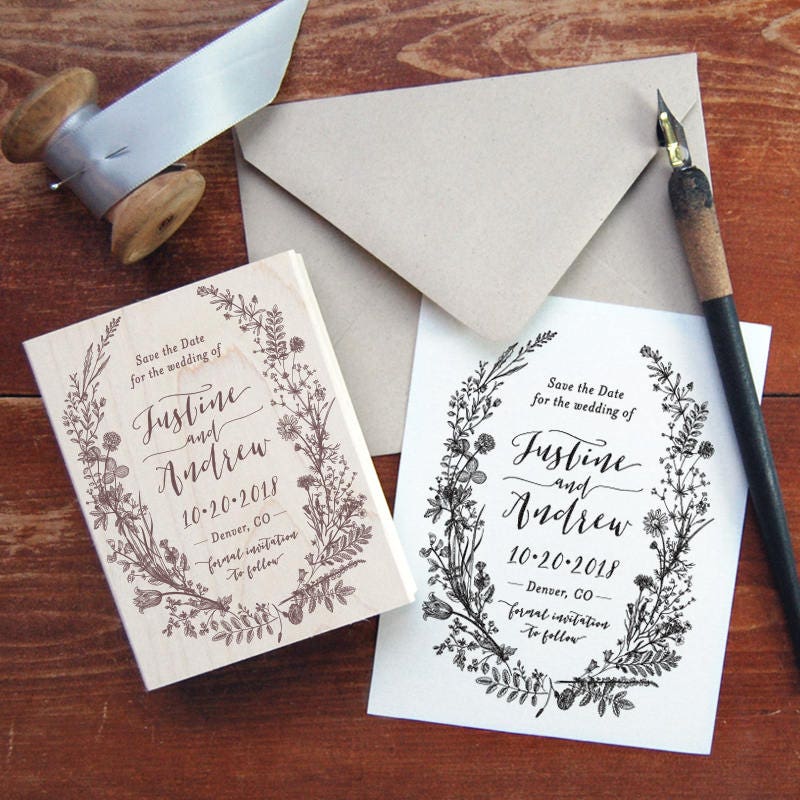 Save the Date
for the wedding of
Justine
and
Andrew
10•20•2018
Denver, CO
formal invitation
to follow
Save the Date
for the wedding of
Justine
and
Andrew
10•20•2018
Denver, CO
formal invitation
to follow